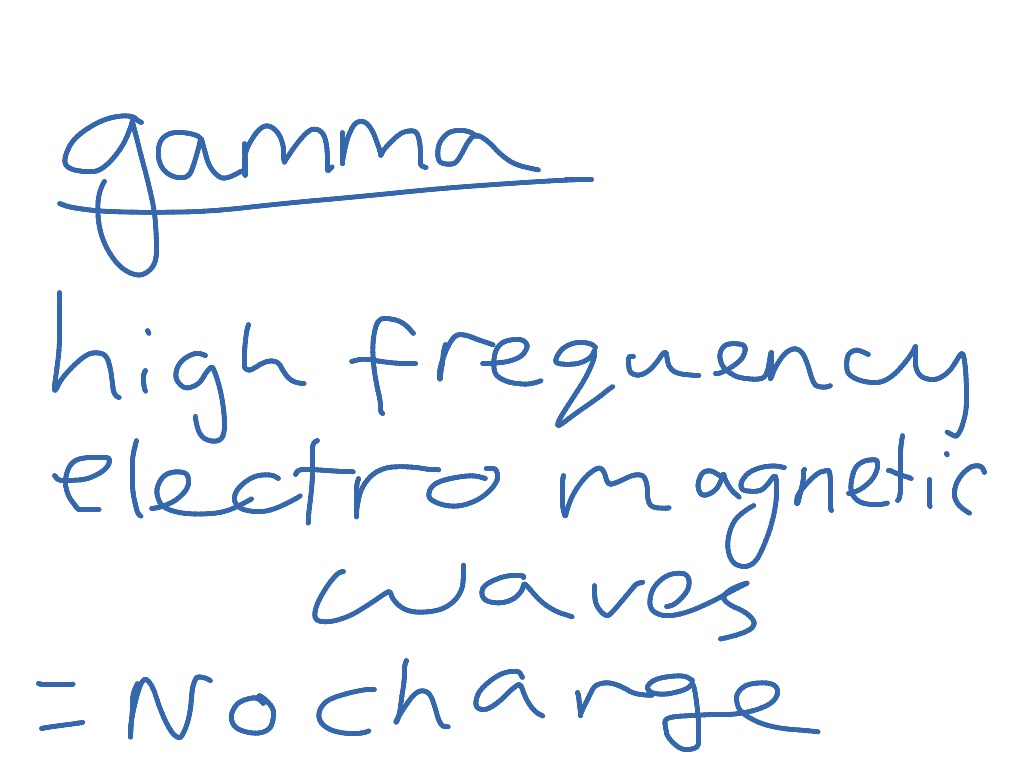 gamma
high frequency
electro magnetic
waves
= No charge